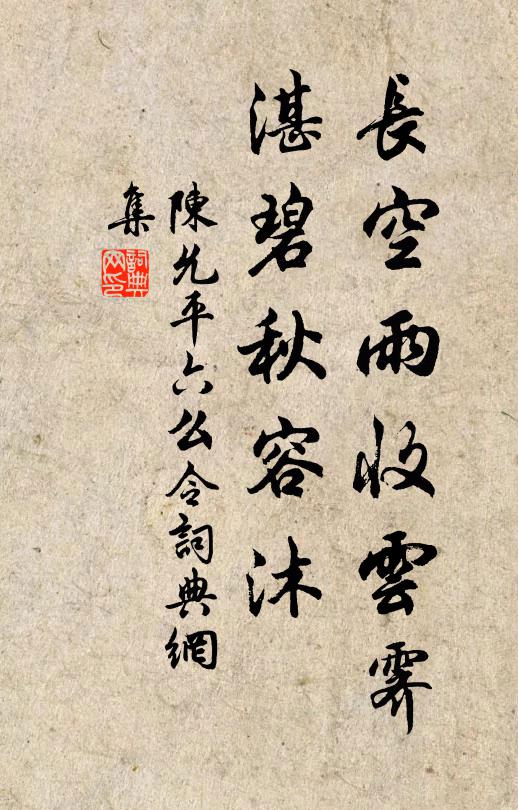 長空雨收雲霽
湛碧秋容沐
陳允平六么令詞典網
集
詞典
網印